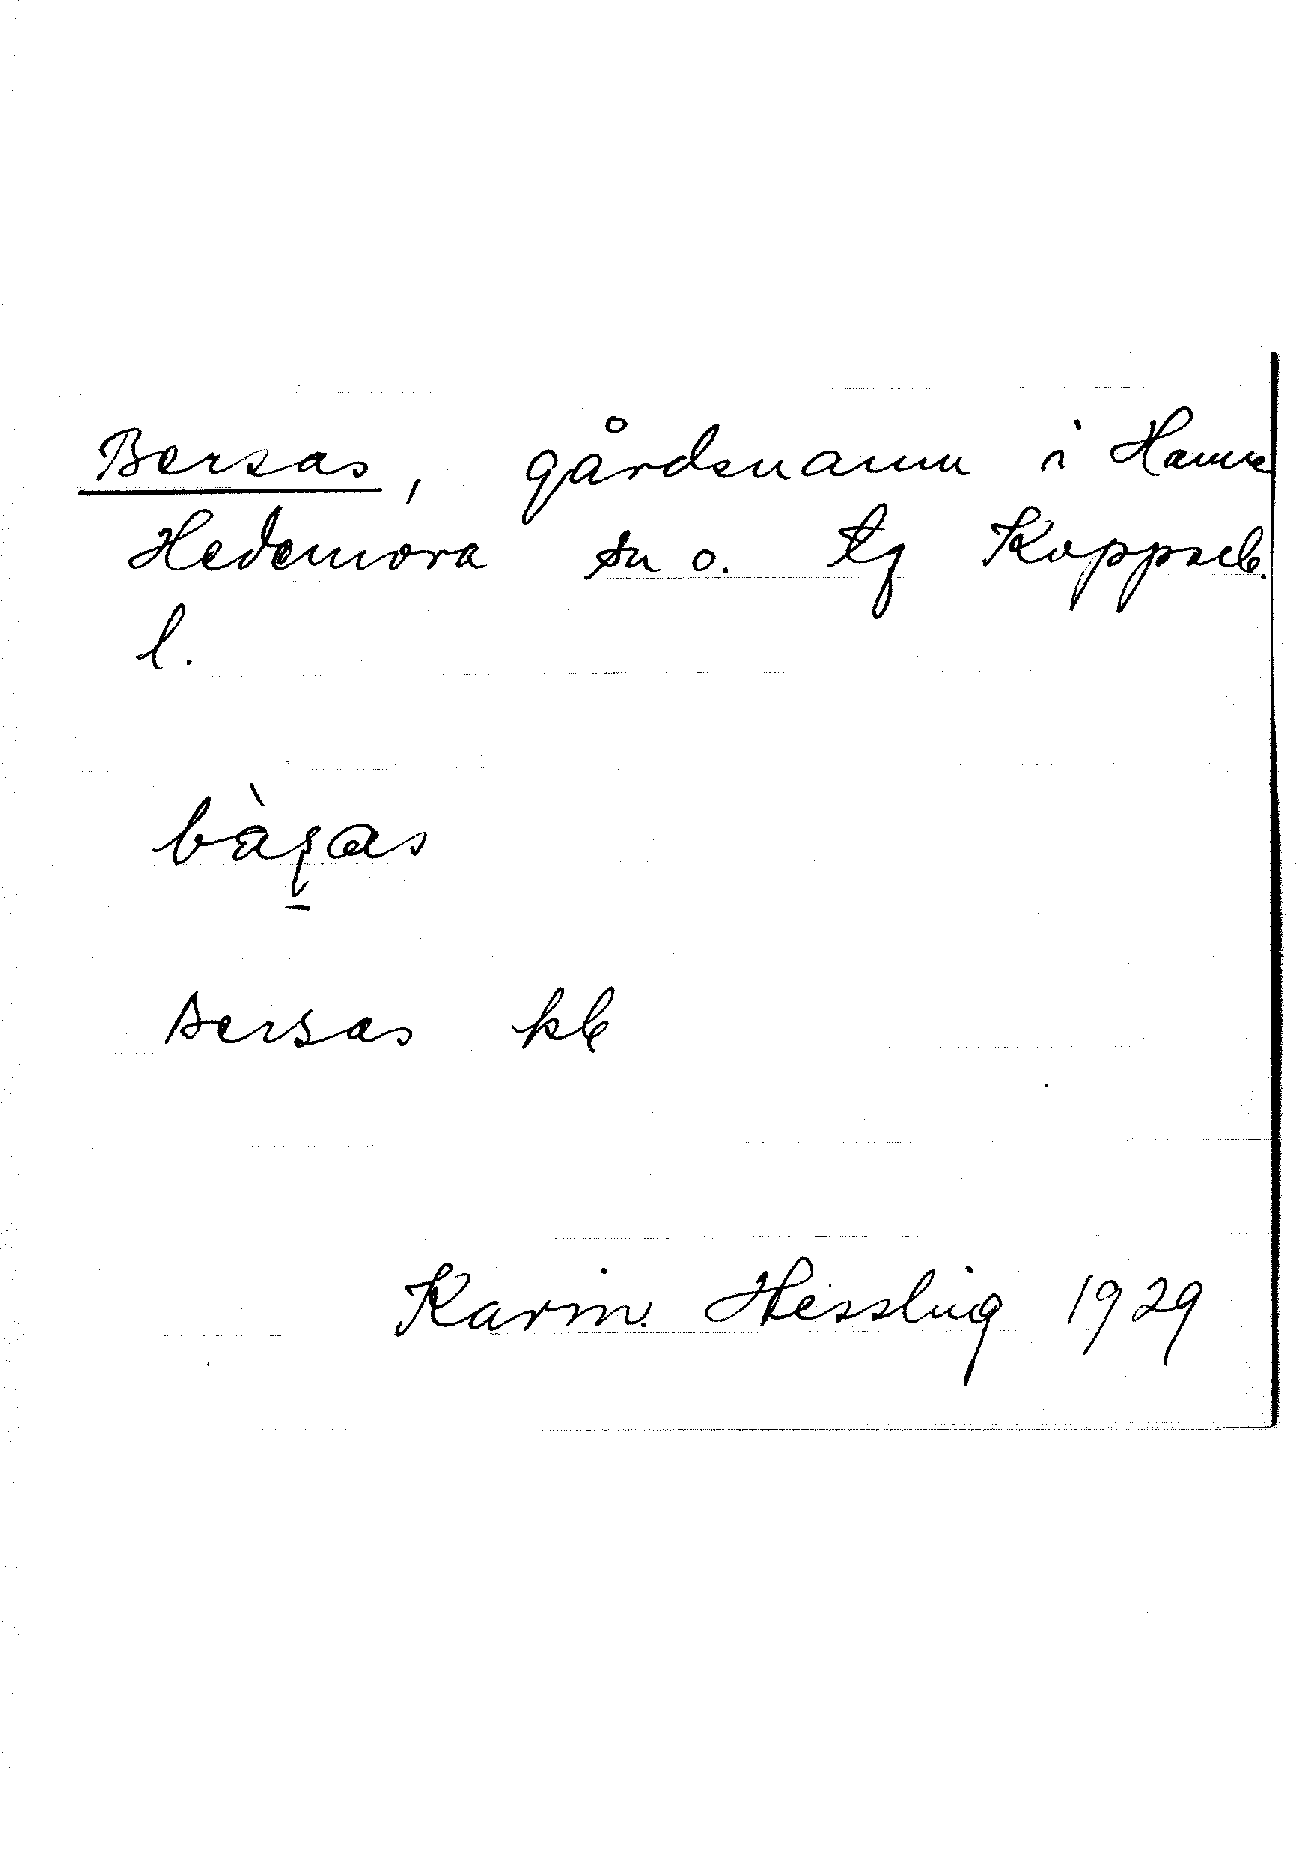 Bersas, gårdsnamn i Hamre
Hedemora sn o. tg Koppseb.
l.
Bersas kb
Karin Hessling 1929